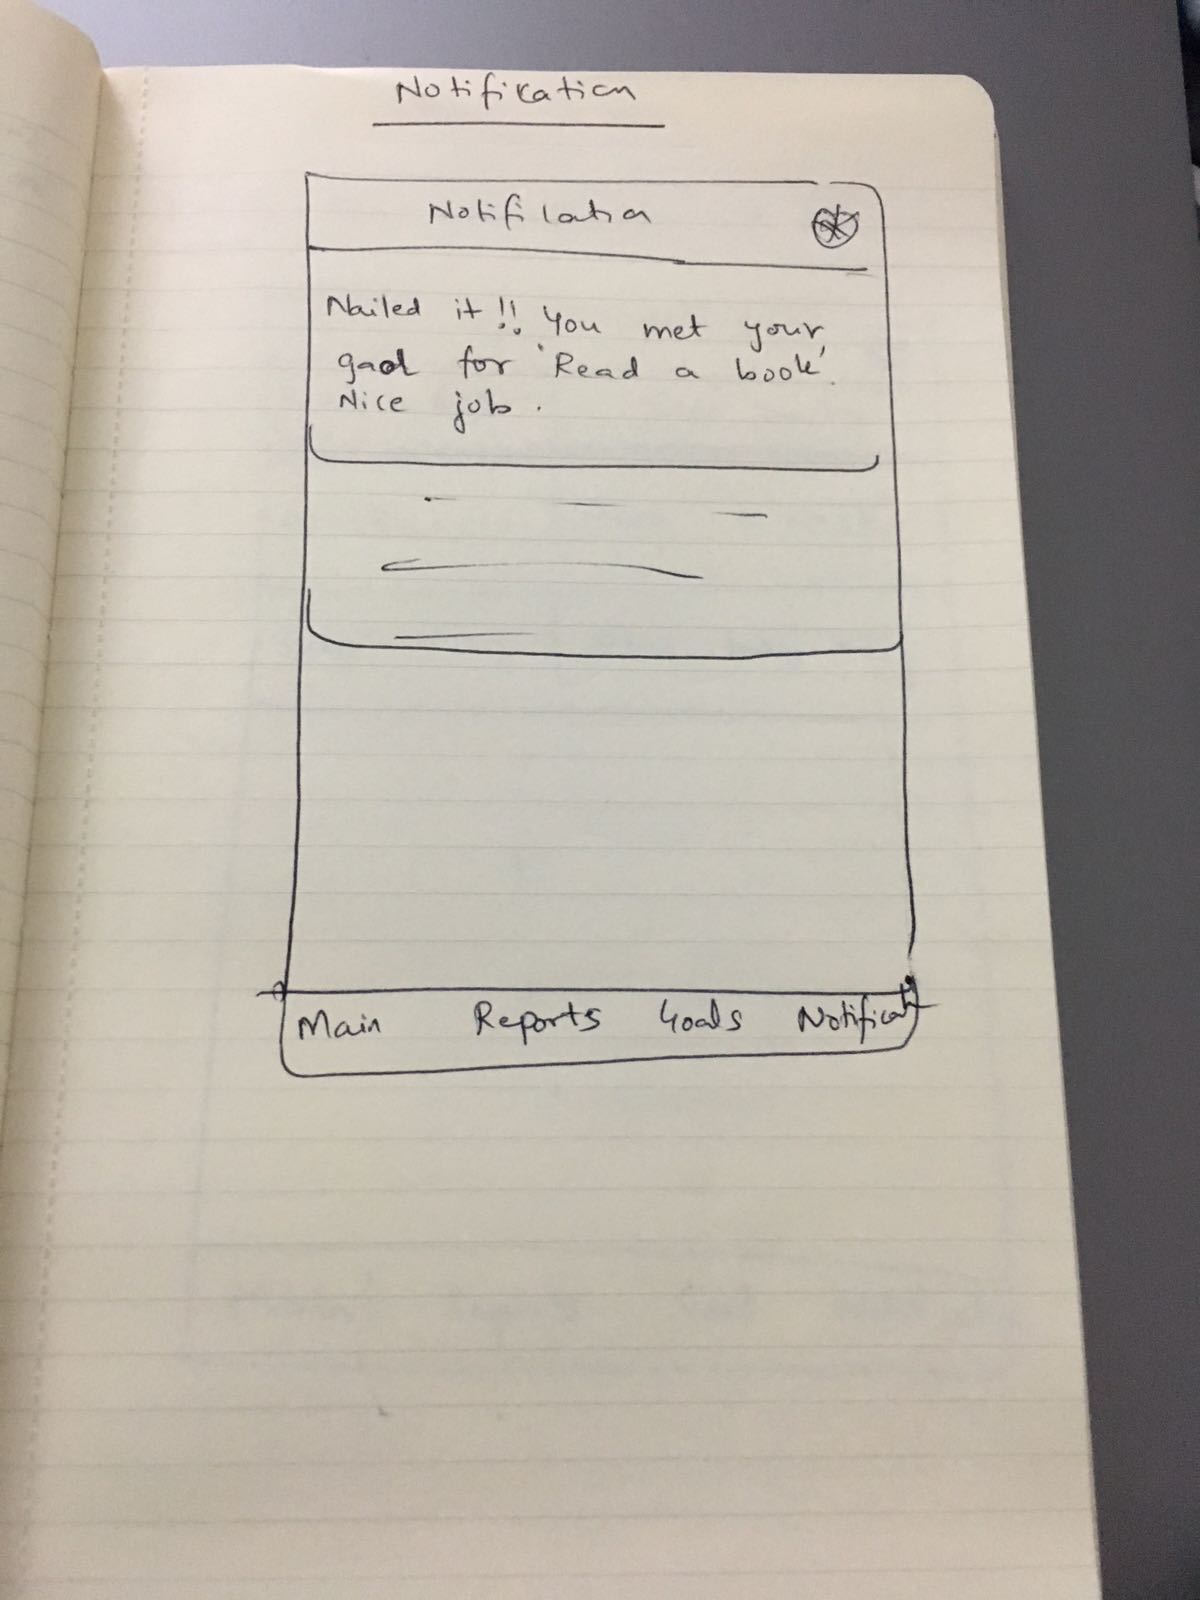 Notification
Notification
Nailed it!! You met your
goal for 'Read a book'.
Nice job.
Main Reports Goals Notificat